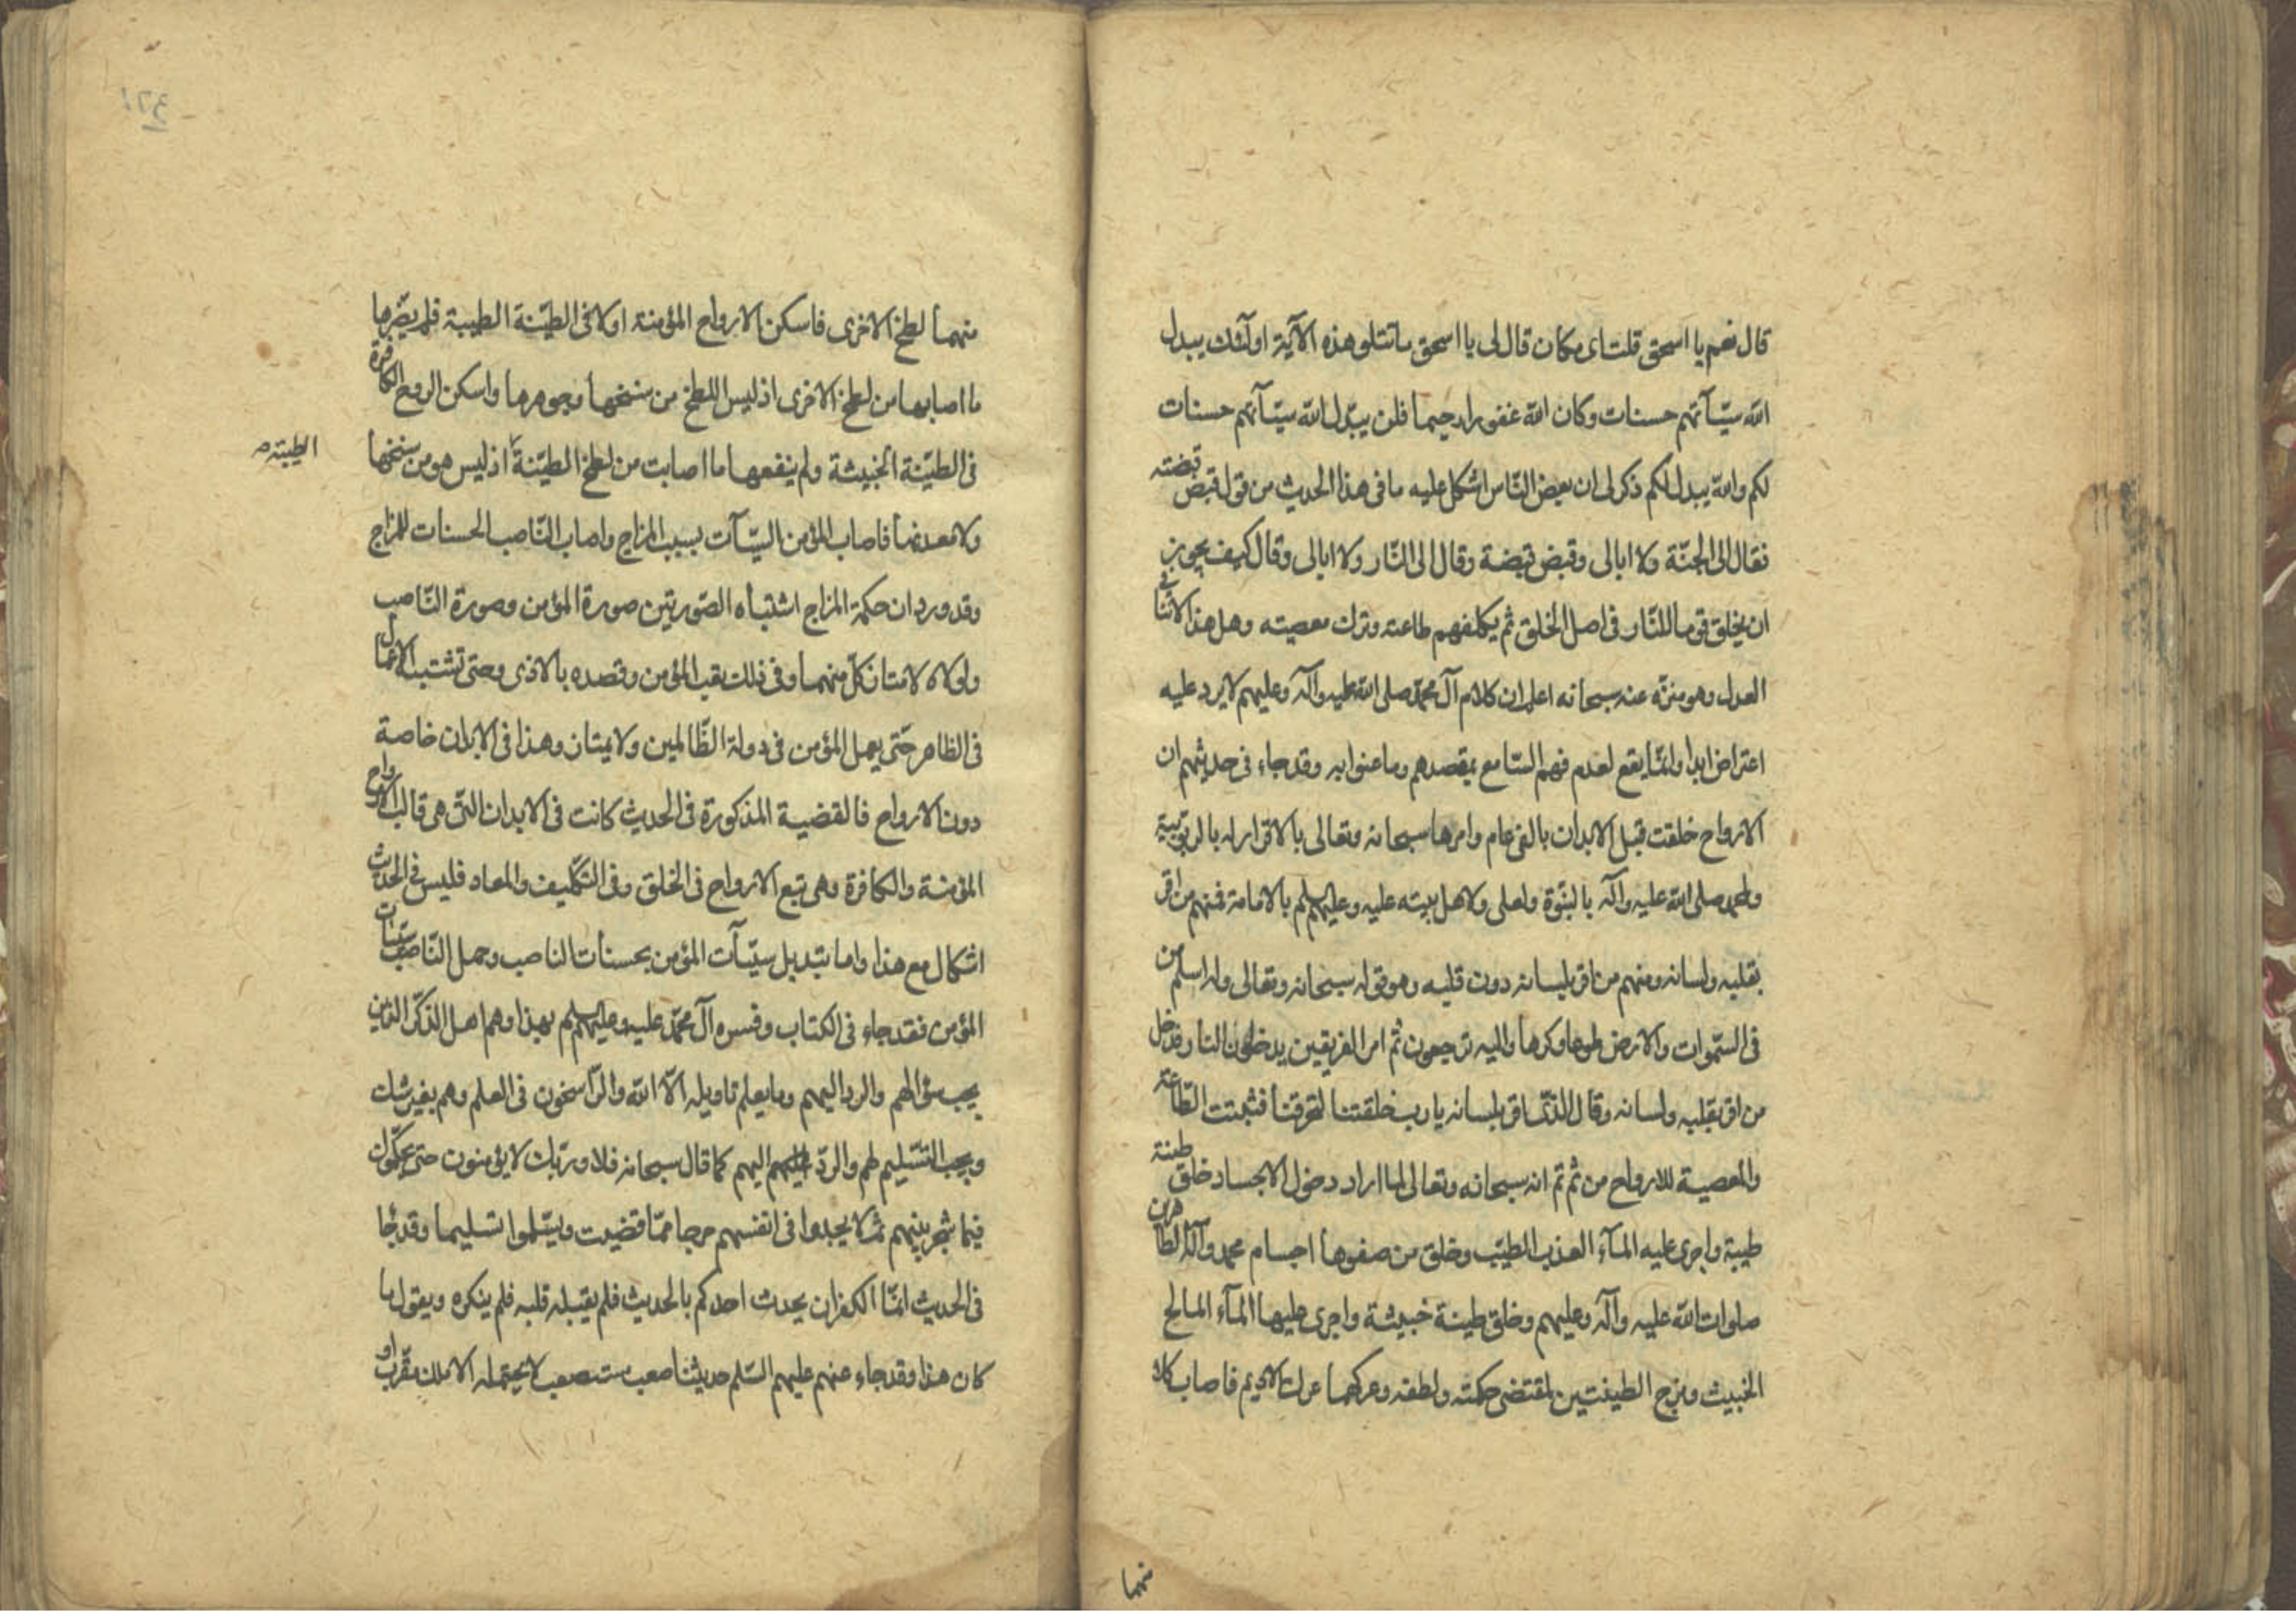 قال نعم يا اسحق قلت اى مكان قال لى يا اسحق ما تتلو هذه الآية اولٓئك يبدل
الله سيّآتهم حسنات وكان الله غفورا رحيما فلن يبدّل الله سيّآتهم حسنات
لكم والله يبدل لكم ذكر لى ان بعض النّاس اشكل عليه ما فى هذا الحديث من قول قبض قبضته
فقال الى الجنّة ولا ابالى وقبض قبضة وقال الى النّار ولا ابالى وقال كيف يجوز
ان يخلق قوما للنّار فى اصل الخلق ثم يكلفهم طاعته وترك معصيته وهل هذا الا ينافى
العدل وهو منزّه عنه سبحانه اعلم ان كلام آل محمّد صلى الله عليه وآله وعليهم لا يرد عليه
اعتراض ابدا وانّما يقع لعدم فهم السّامع بمقصدهم وما عنوا به وقد جاء فى حديثهم ان
الارواح خلقت قبل الابدان بالفى عام وامرها سبحانه وتعالى بالاقرار له بالربوبية
ولمحمد صلى الله عليه وآله بالنبّوة ولعلى ولاهل بيته عليه وعليهم السلم بالامامة فمنهم من اقر
بقلبه ولسانه ومنهم من اقر بلسانه دون قلبه وهو قوله سبحانه وتعالى وله اسلم من
فى السّموات والارض طوعا وكرها واليه ترجعون ثم امر الفريقين يدخلون النار فدخل
من اقر بقلبه ولسانه وقال الذى اقر بلسانه يا رب خلقتنا لتحرقنا فثبتت الطّاعة
والمعصية للارواح من ثم ثم انه سبحانه وتعالى لما اراد دخول الاجساد خلق طينة
طيبة واجرى عليه المآء العذب الطيّب وخلق من صفوها اجسام محمد وآله الطاهرين
صلوات الله عليه وآله وعليهم وخلق طينة خبيثة واجرى عليها المآء المالح
الخبيث ومزج الطينتين لمقتضى حكمته ولطفه وعركهما عرك الاديم فاصاب كلا
منهما
١٢٤
منهما لطخ الاخرى فاسكن الارواح المؤمنة اولا فى الطيّنة الطيبة فلم يضّرها
ما اصابها من لطخ الاخرى اذ ليس اللطخ من سنخها وجوهرها واسكن الروح الكافرة
فى الطيّنة الخبيثة ولم ينفعها ما اصابت من لطخ الطيّنة اذ ليس هو من سنخها
الطيبة
ولا معدنها فاصاب المؤمن السيّآت بسبب المزاج واصاب النّاصب الحسنات للمزاج
وقد ورد ان حكمة المزاج اشتباه الصّورتين صورة المؤمن وصورة النّاصب
ولولاه لامتاز كلّ منهما وفى ذلك تعب المؤمن وقصده بالاذى وحتى تشتبه الاعمال
فى الظاهر حتّى يعمل المؤمن فى دولة الظّالمين ولا يمتاز وهذا فى الابدان خاصة
دون الارواح فالقضية المذكورة فى الحديث كانت فى الابدان التّى هى قالب الارواح
المؤمنة والكافرة وهى تبع الارواح فى الخلق وفى التّكليف والمعاد فليس فى الحديث
اشكال مع هذا واما تبديل سيّآت المؤمن بحسنات الناصب وحمل النّاصب سيئات
المؤمن فقد جاء فى الكتاب وفسره آل محمّد عليه وعليهم السلم بهذا وهم اهل الذكّر الذين
يجب سؤالهم والرد اليهم وما يعلم تاويله الّا الله والرّاسخون فى العلم وهم بغير شك
ويجب التسّليم لهم والردّ اليهم كما قال سبحانه فلا وربّك لا يؤمنون حتى يحكّموك
فيما شجر بينهم ثم لا يجدوا فى انفسهم حرجا ممّا قضيت ويسّلموا تسليما وقد جا
فى الحديث انمّا الكفر ان يحدث احدكم بالحديث فلم يقبله قلبه فلم ينكره ويقول ما
كان هذا وقد جاء عنهم عليهم السّلم حديثنا صعب مستصعب لا يحتمله الا ملك مقرّب او